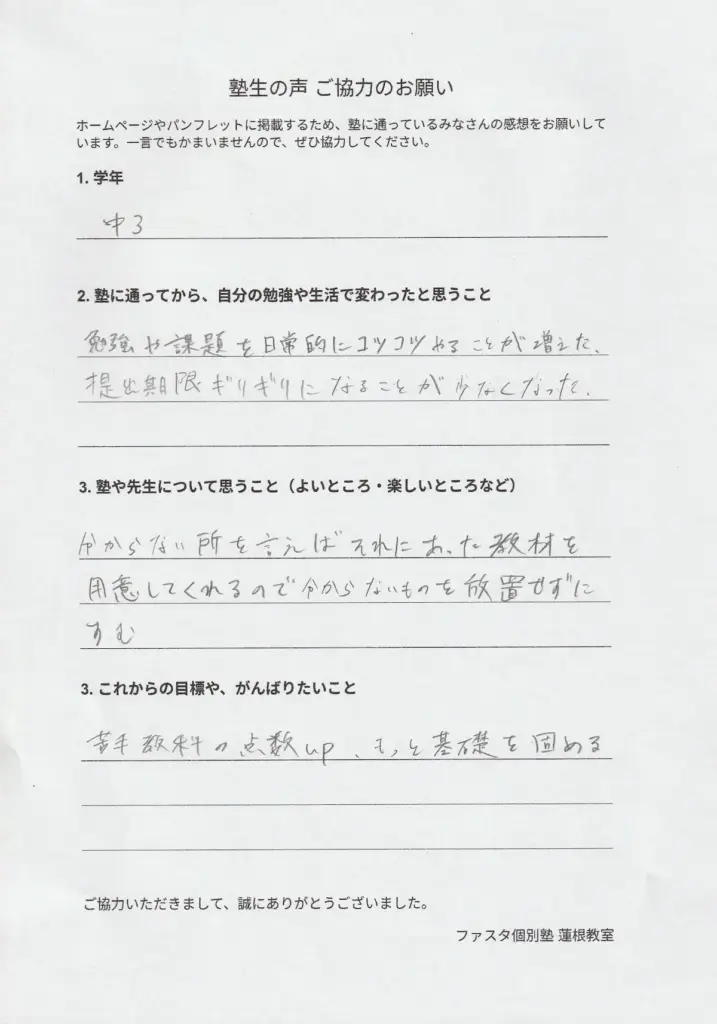 塾生の声 ご協力のお願い
ホームページやパンフレットに掲載するため、塾に通っているみなさんの感想をお願いして
います。一言でもかまいませんので、ぜひ協力してください。
1. 学年
中3
2. 塾に通ってから、自分の勉強や生活で変わったと思うこと
勉強や課題を日常的にコツコツやることが増えた、
提出期限ギリギリになることが少なくなった、
3. 塾や先生について思うこと（よいところ・楽しいところなど）
分からない所を言えばそれにあった教材を
用意してくれるので分からないものを放置せずに
すむ
3. これからの目標や、がんばりたいこと
苦手教科の点数up、もっと基礎を固める
ご協力いただきまして、誠にありがとうございました。
ファスタ個別塾 蓮根教室